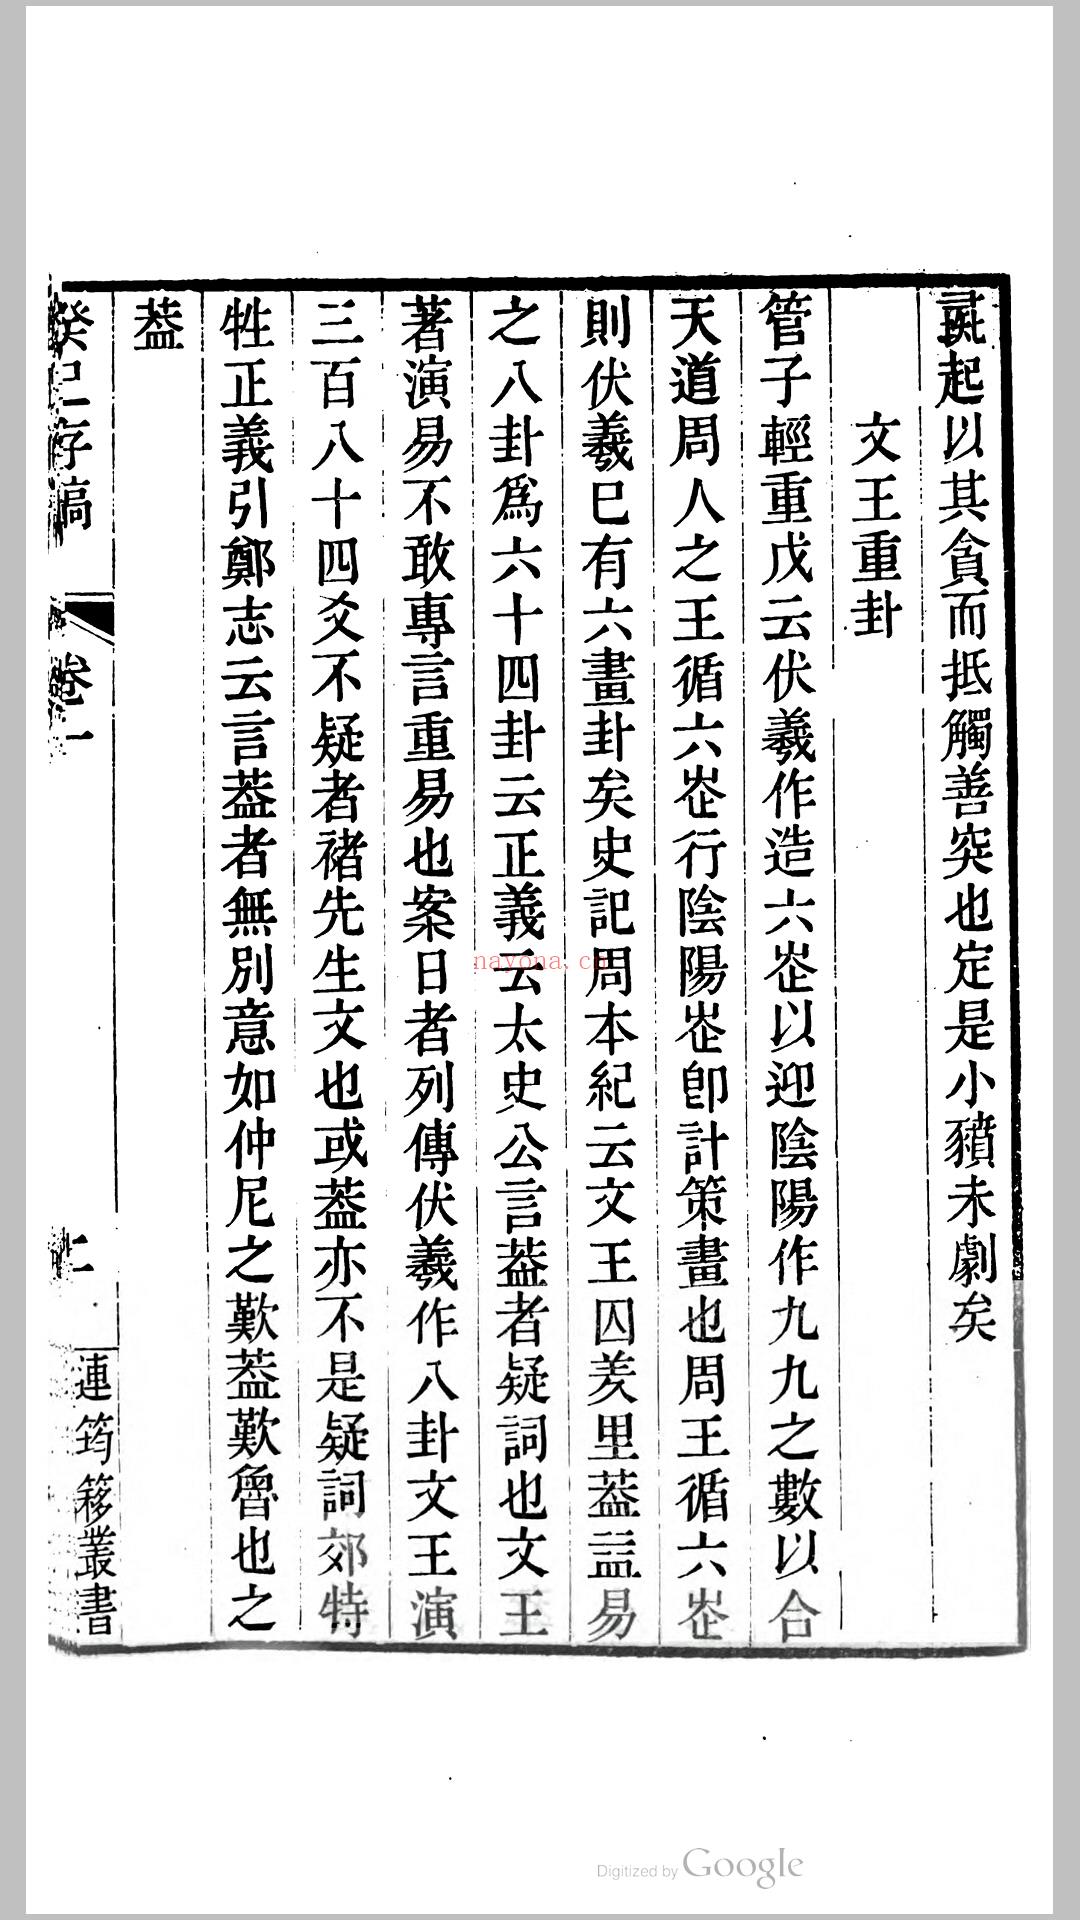 起以其貪而抵觸善突也定是小豶未劇矣
文王重卦
管子輕重戊云伏羲作造六峜以迎陰陽作九九之數以合
天道周人之王循六峜行陰陽峜卽計策畫也周王循六峜
則伏羲巳有六畫卦矣史記周本紀云文王囚羑里葢益易
之八卦爲六十四卦云正義云太史公言葢者疑詞也文王
著演易不敢專言重易也案日者列傳伏羲作八卦文王演
三百八十四爻不疑者褚先生文也或葢亦不是疑詞郊特
牲正義引鄭志云言葢者無別意如仲尼之歎葢歎魯也之
葢
癸巳存稿
卷一
二
連筠簃叢書
nayona.cn
Digitized by Google